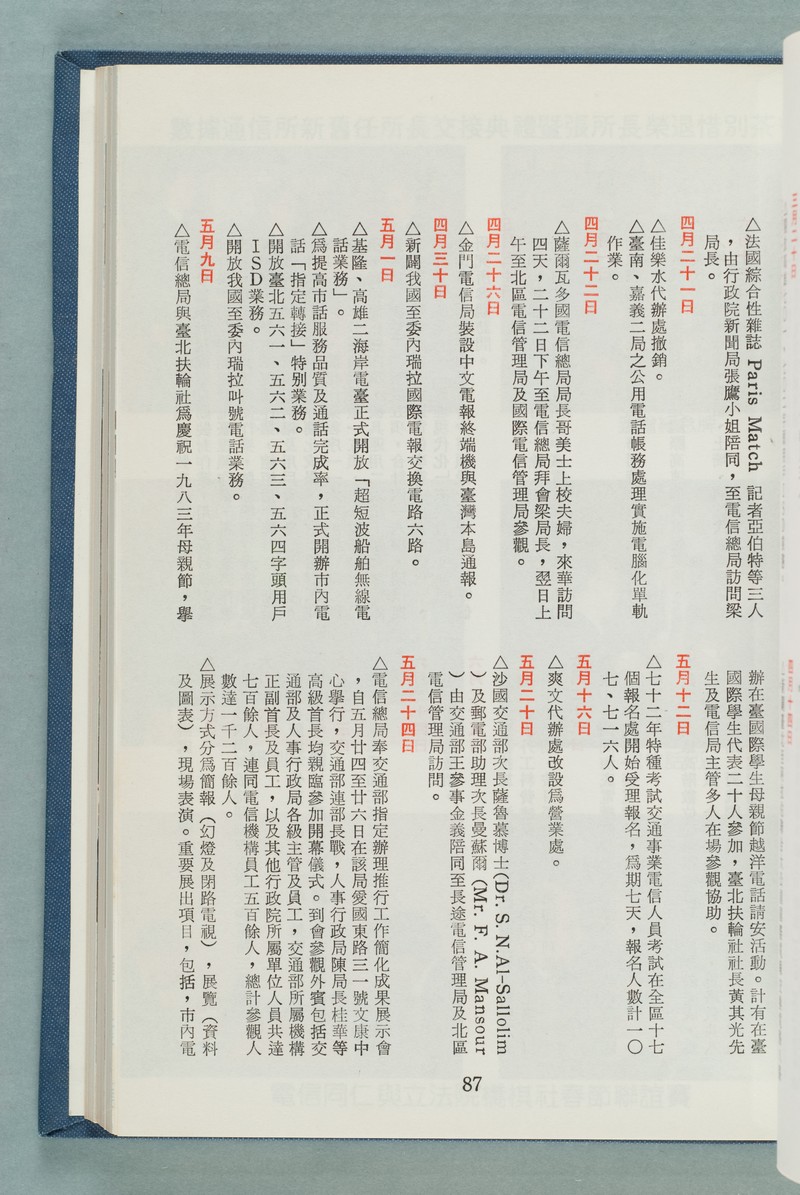 △法國綜合性雜誌 Paris Match 記者亞伯特等三人
，由行政院新聞局張鷹小姐陪同，至電信總局訪問梁
局長。
四月二十一日
△佳樂水代辦處撤銷。
△臺南、嘉義二局之公用電話帳務處理實施電腦化單軌
作業。
四月二十二日
△薩爾瓦多國電信總局局長哥美士上校夫婦，來華訪問
四天，二十二日下午至電信總局拜會梁局長，翌日上
午至北區電信管理局及國際電信管理局參觀。
四月二十六日
△金門電信局裝設中文電報終端機與臺灣本島通報。
四月三十日
△新闢我國至委內瑞拉國際電報交換電路六路。
五月一日
△基隆、高雄二海岸電臺正式開放「超短波船舶無線電
話業務」。
△爲提高市話服務品質及通話完成率，正式開辦市內電
話「指定轉接」特别業務。
△開放臺北五六一、五六二、五六三、五六四字頭用戶
ＩＳＤ業務。
△開放我國至委內瑞拉叫號電話業務。
五月九日
△電信總局與臺北扶輪社爲慶祝一九八三年母親節，舉
辦在臺國際學生母親節越洋電話請安活動。計有在臺
國際學生代表二十人參加，臺北扶輪社社長黃其光先
生及電信局主管多人在場參觀協助。
五月十二日
△七十二年特種考試交通事業電信人員考試在全區十七
個報名處開始受理報名，爲期七天，報名人數計一〇
七、七一六人。
五月十六日
△爽文代辦處改設爲營業處。
五月二十日
△沙國交通部次長薩魯慕博士(Dr. S. N.Al-Sallolim
）及郵電部助理次長曼蘇爾 (Mr. F. A. Mansour
）由交通部王參事金義陪同至長途電信管理局及北區
電信管理局訪問。
五月二十四日
△電信總局奉交通部指定辦理推行工作簡化成果展示會
，自五月廿四至廿六日在該局愛國東路三一號文康中
心舉行，交通部連部長戰，人事行政局陳局長桂華等
高級首長均親臨參加開幕儀式。到會參觀外賓包括交
通部及人事行政局各級主管及員工，交通部所屬機構
正副首長及員工，以及其他行政院所屬單位人員共達
七百餘人，連同電信機構員工五百餘人，總計參觀人
數達一千二百餘人。
△展示方式分爲簡報（幻燈及閉路電視），展覽（資料
及圖表），現場表演。重要展出項目，包括，市內電
87